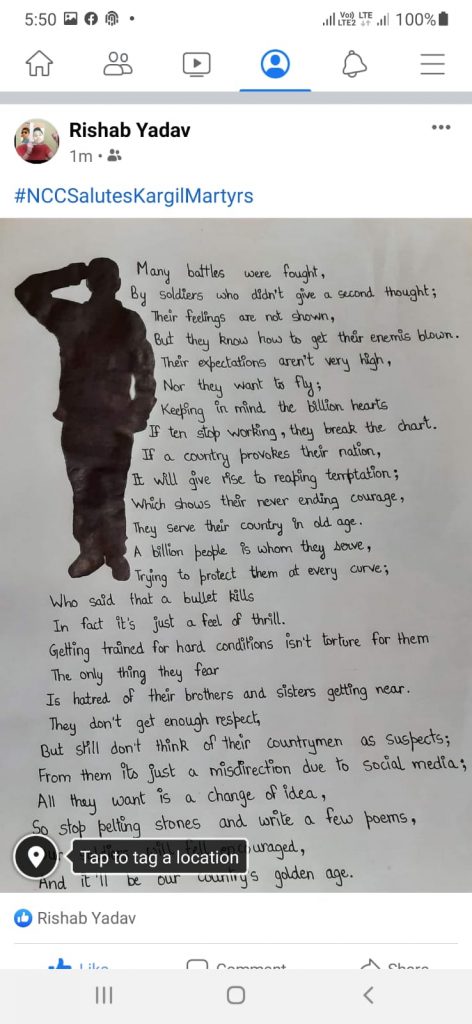 5:50
Vo)) LTE
LTE2
100%
Rishab Yadav
1m
#NCCSalutesKargilMartyrs
Many battles were fought,
By soldiers who didn't give a second thought;
Their feelings are not shown,
But they know how to get their enemis blown.
Their expectations aren't very high,
Nor they want to fly;
Keeping in mind the billion hearts
If ten stop working, they break the chart.
If a country provokes their nation,
It will give rise to reaping temptation;
Which shows their never ending courage,
They serve their country in old age.
A billion people is whom they serve,
Trying to protect them at every curve;
Who said that a bullet kills
In fact it's just a feel of thrill.
Getting trained for hard conditions isn't torture for them
The only thing they fear
Is hatred of their brothers and sisters getting near.
They don't get enough respect,
But still don't think of their countrymen as suspects;
From them its just a misdirection due to social media;
All they want is a change of idea,
So stop pelting stones and write a few poems,
will feel encouraged,
Tap to tag a location
And it'll be our country's golden age.
Rishab Yadav
Like
Comment
Share